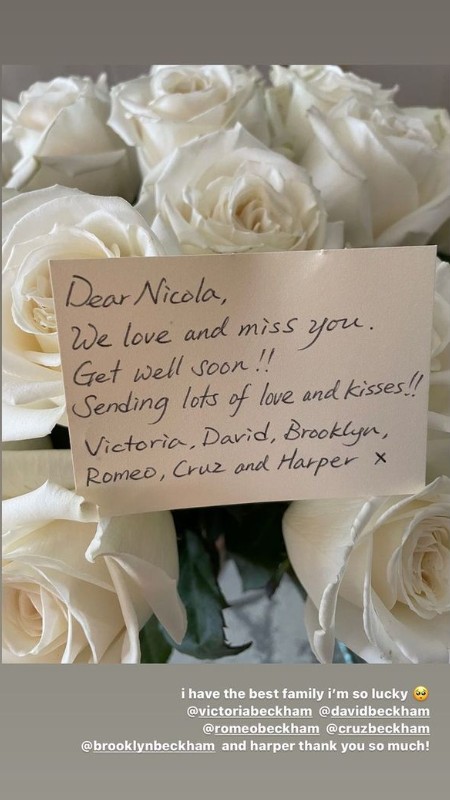 Dear Nicola,
We love and miss you.
Get well soon!!
Sending lots of love and kisses!!
Victoria, David, Brooklyn,
Romeo, Cruz and Harper x
i have the best family i'm so lucky 🥺
@victoriabeckham @davidbeckham
@romeobeckham @cruzbeckham
@brooklynbeckham and harper thank you so much!